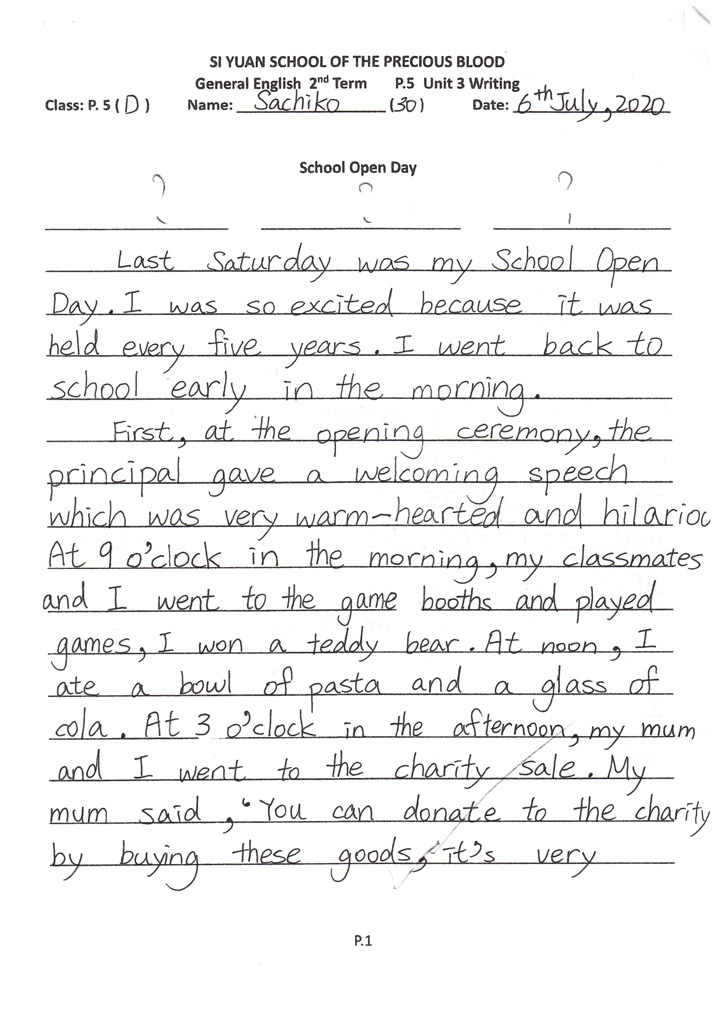 SI YUAN SCHOOL OF THE PRECIOUS BLOOD
General English 2nd Term P.5 Unit 3 Writing
Class: P. 5 ( D ) Name: Sachiko (30) Date: 6th July, 2020
School Open Day
? ? ?
Last Saturday was my School Open
Day. I was so excited because it was
held every five years. I went back to
school early in the morning.
First, at the opening ceremony, the
principal gave a welcoming speech
which was very warm-hearted and hilariou
At 9 o'clock in the morning, my classmates
and I went to the game booths and played
games, I won a teddy bear. At noon, I
ate a bowl of pasta and a glass of
cola. At 3 o'clock in the afternoon, my mum
and I went to the charity sale. My
mum said, "You can donate to the charity
by buying these goods, it's very
P.1